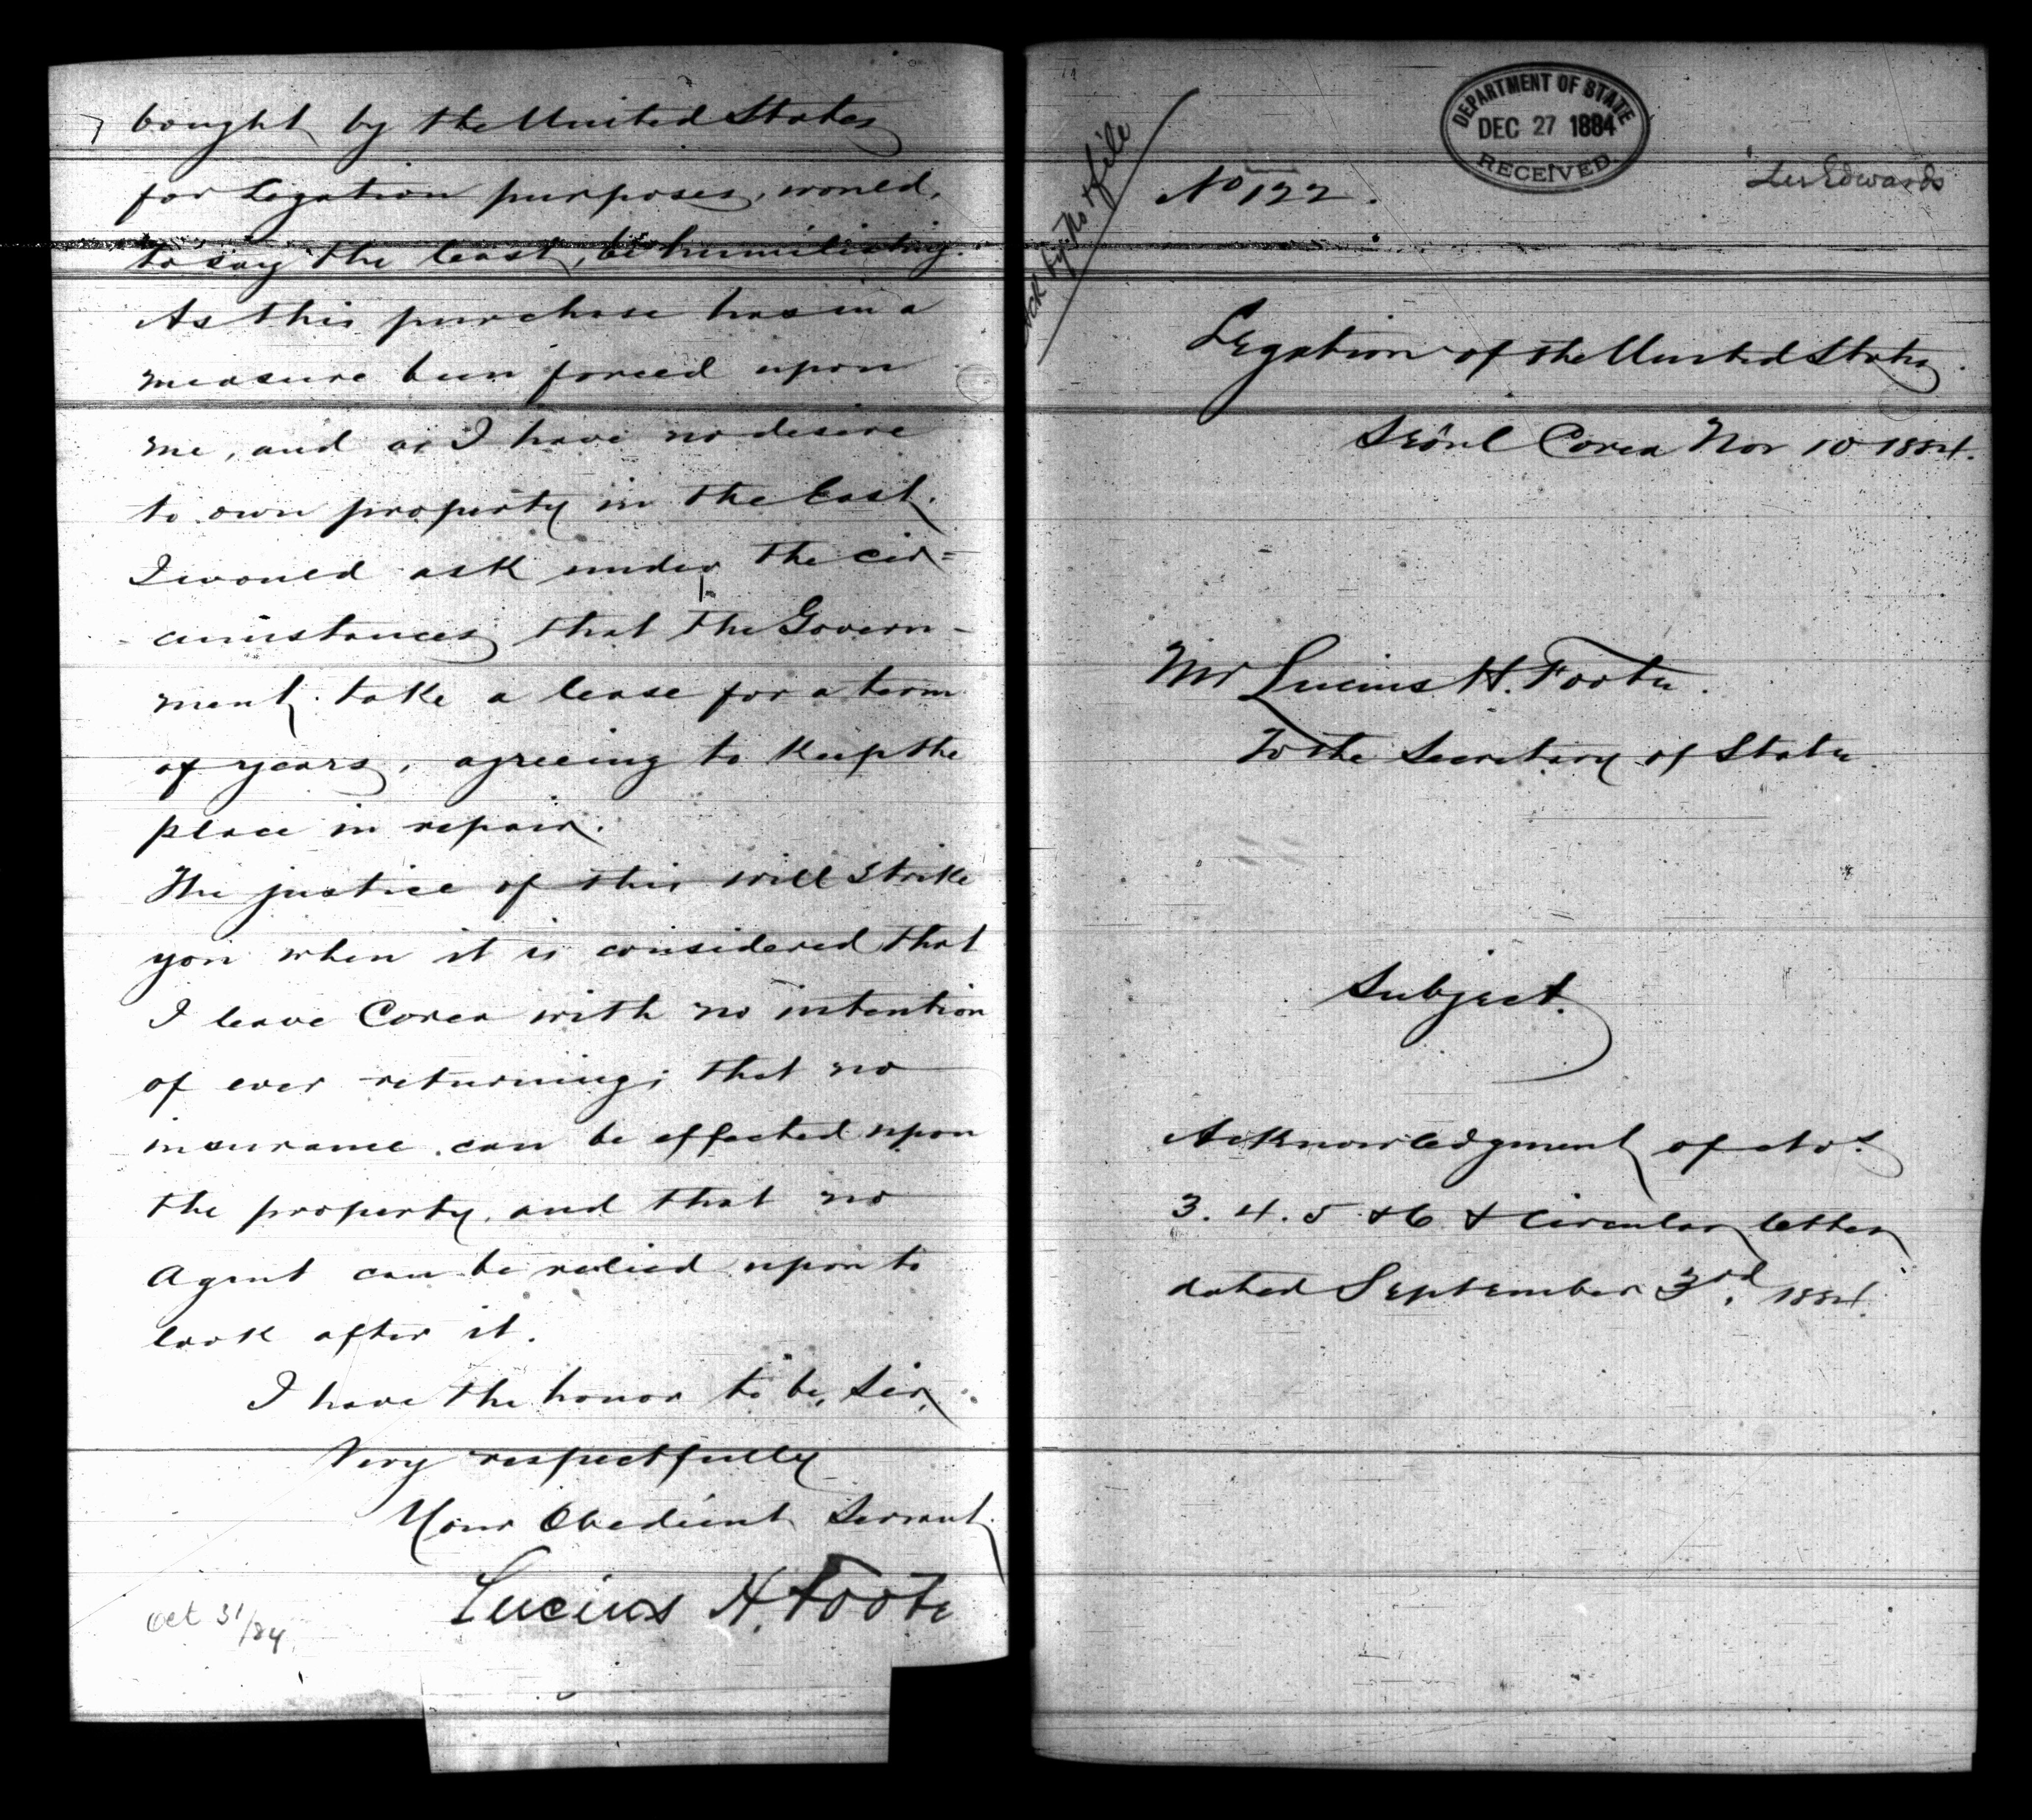 bought by the United States
for Legation purposes, would,
to say the least, be humiliating.
As this purchase has in a
measure been forced upon
me, and as I have no desire
to own property in the East.
I would ask under the cir=
-cumstances that the Govern-
ment take a lease for a term
of years, agreeing to keep the
place in repair.
The justice of this will strike
you when it is considered that
I leave Corea with no intention
of ever returning; that no
insurance can be effected upon
the property, and that no
Agent can be relied upon to
look after it.
I have the honor to be, Sir,
Very respectfully
Your Obedient Servant.
Lucius H. Foote
Oct 31/84
DEPARTMENT OF STATE
DEC 27 1884
RECEIVED.
Edwards
No 122.
file
Legation of the United States.
Sëoul Corea Nov 10 1884.
Mr Lucius H. Foote.
To the Secretary of State.
Subject.
Acknowledgment of Nos
3. 4. 5 & 6 & Circular letter
dated September 3rd, 1884.